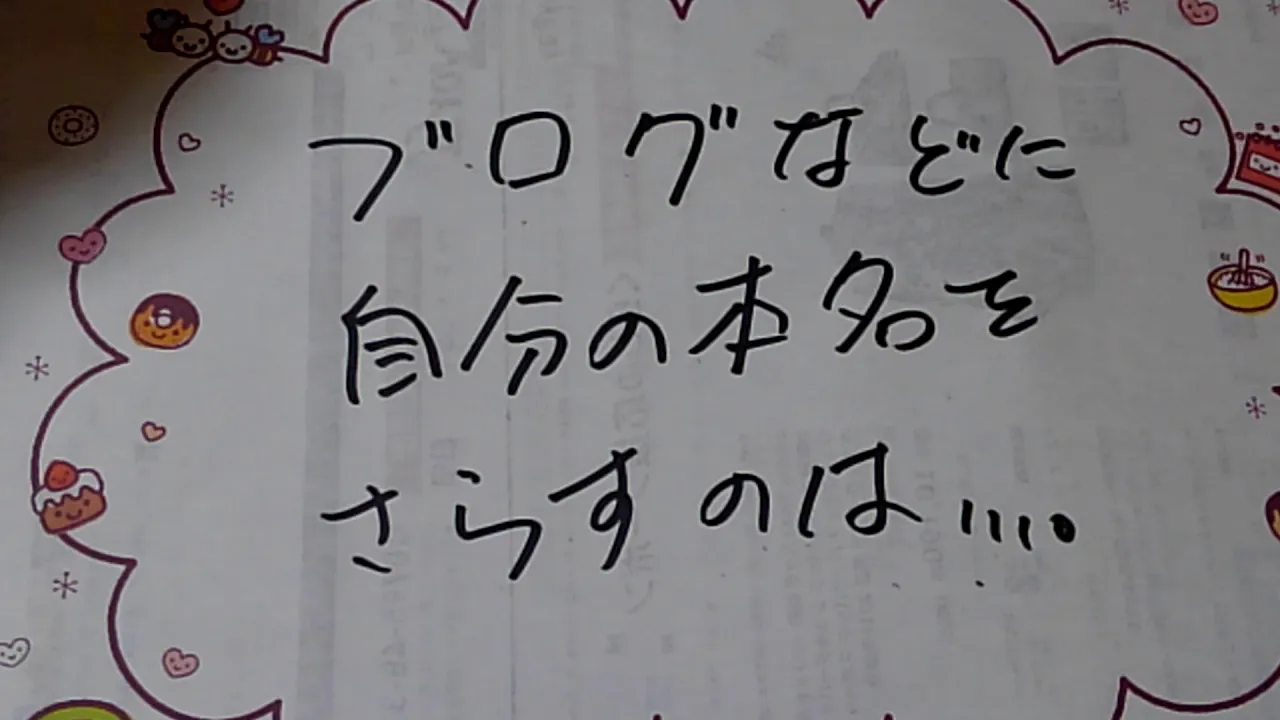 ブログなどに
自分の本名を
さらすのは....